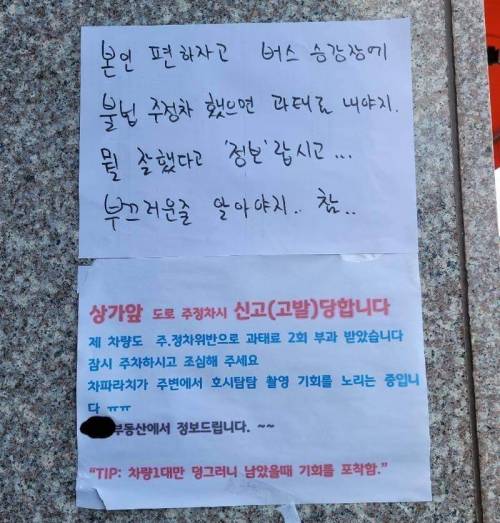 본인 편하자고 버스 승강장에
불법 주정차 했으면 과태료 내야지.
뭘 잘했다고 '정보'랍시고...
부끄러운줄 알아야지.. 참..
상가앞 도로 주정차시 신고(고발)당합니다
제 차량도 주.정차위반으로 과태료 2회 부과 받았습니다
잠시 주차하시고 조심해 주세요
차파라치가 주변에서 호시탐탐 촬영 기회를 노리는 중입니
다 ㅠㅠ
부동산에서 정보드립니다. ~~
“TIP: 차량1대만 덩그러니 남았을때 기회를 포착함.”